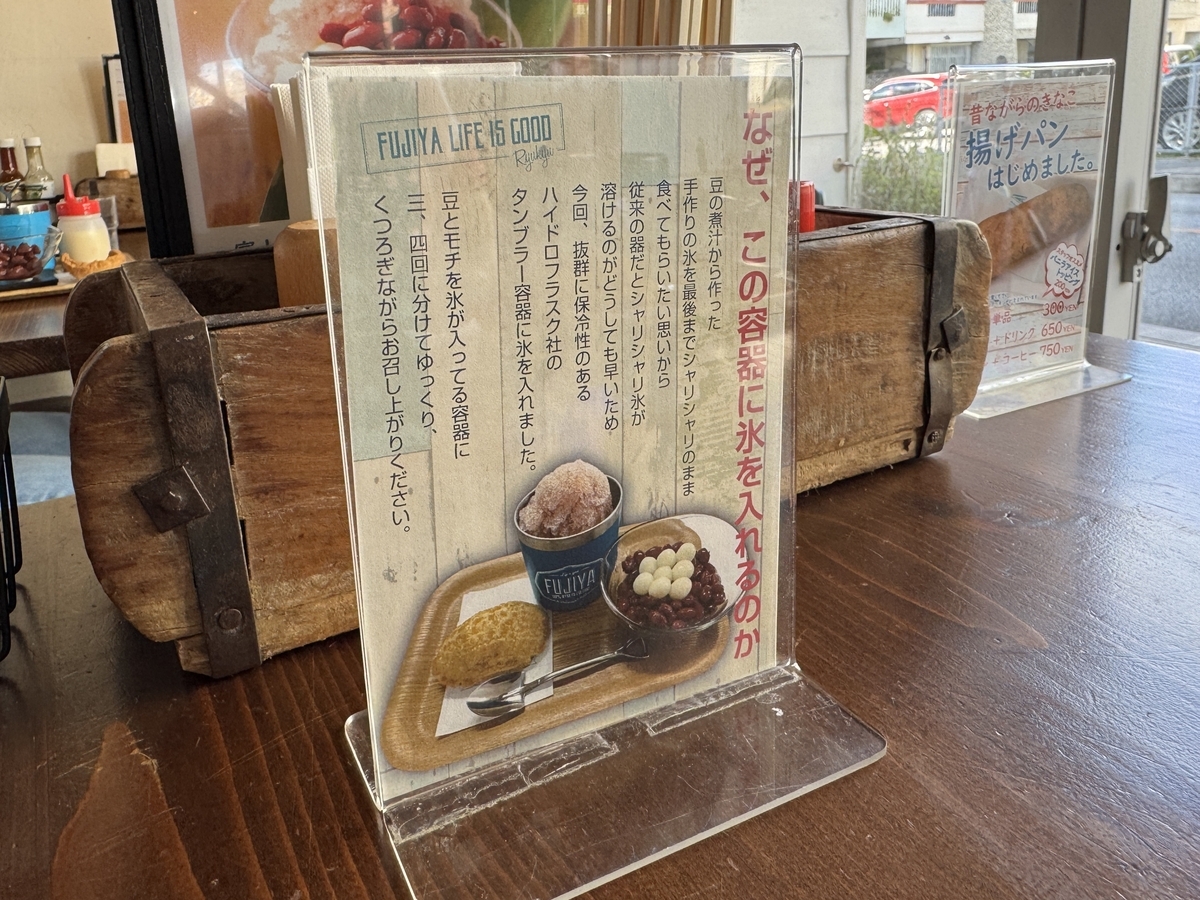 FUJIYA LIFE IS GOOD
Ryukyu
なぜ、この容器に氷を入れるのか
豆の煮汁から作った
手作りの氷を最後までシャリシャリのまま
食べてもらいたい思いから
従来の器だとシャリシャリ氷が
溶けるのがどうしても早いため
今回、抜群に保冷性のある
ハイドロフラスク社の
タンブラー容器に氷を入れました。
豆とモチを氷が入ってる容器に
三、四回に分けてゆっくり、
くつろぎながらお召し上がりください。
FUJIYA
昔ながらのきなこ
揚げパン
はじめました。
バニラアイス
トッピング
単品 300YEN
+ドリンク 650YEN
+コーヒー 750YEN